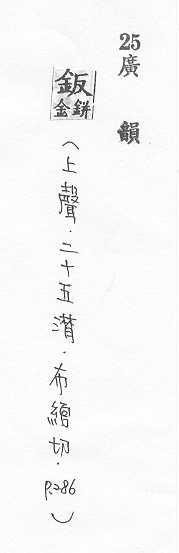 25廣韻
鈑
金鉼
(上聲.二十五潸.布綰切.P.286)